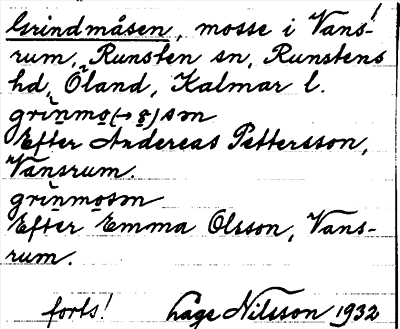 Grindmåsen, mosse i Vans-!
rum, Runsten sn, Runstens
hd, Öland, Kalmar l.
grìnmo̱(→o̱)sm
Efter Andereas Pettersson,
Vansrum.
grìnmo̱sm
Efter Emma Olsson, Vans-
rum.
forts! Låge Nilsson 1932